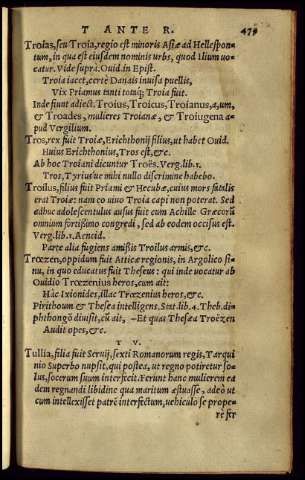 T ANTE R. 479
Troias, seu Troia, regio est minoris Asiæ ad Hellespon-
tum, in qua est eiusdem nominis urbs, quod Ilium uo-
catur. Vide suprà. Ouid in Epist.
Troia iacet, certè Danais inuisa puellis,
Vix Priamus tanti totaq; Troia fuit.
Inde fiunt adiect. Troius, Troicus, Troianus, a, um,
& Troades, mulieres Troianæ, & Troiugena a-
pud Vergilium.
Tros, rex fuit Troiæ, Erichthonij filius, ut habet Ouid.
Huius Erichthonius, Tros est, &c.
Ab hoc Troiani dicuntur Troës. Verg. lib. 1.
Tros, Tyrius'ue mihi nullo discrimine habebo.
Troilus, filius fuit Priami & Hecubæ, cuius mors fatalis
erat Troiæ: nam eo uiuo Troia capi non poterat. Sed
adhuc adolescentulus ausus fuit cum Achille Græcorũ
omnium fortißimo congredi, sed ab eodem occisus est.
Verg. lib. 1. Aeneid.
Parte alia fugiens amißis Troilus armis, &c.
Trœzen, oppidum fuit Atticæ regionis, in Argolico si-
nu, in quo educatus fuit Theseus: qui inde uocatur ab
Ouidio Trœzenius heros, cum ait:
Hàc Ixionides, illac Trœzenius heros, &c.
Pirithoum & Thesea intelligens. Stat. lib. 4. Theb. di-
phthongõ diuisit, cũ ait, -Et quas Theseia Troëzen
Audit opes, &c.
T V.
Tullia, filia fuit Seruij, sexti Romanorum regis, Tarqui
nio Superbo nupsit, qui posteà, ut regno potiretur so-
lus, socerum suum interfecit. Ferunt hanc mulierem ea
dem regnandi libidine qua maritum æstuasse, adeò ut
cum intellexisset patrẽ interfectum, uehiculo se prope-
re fer